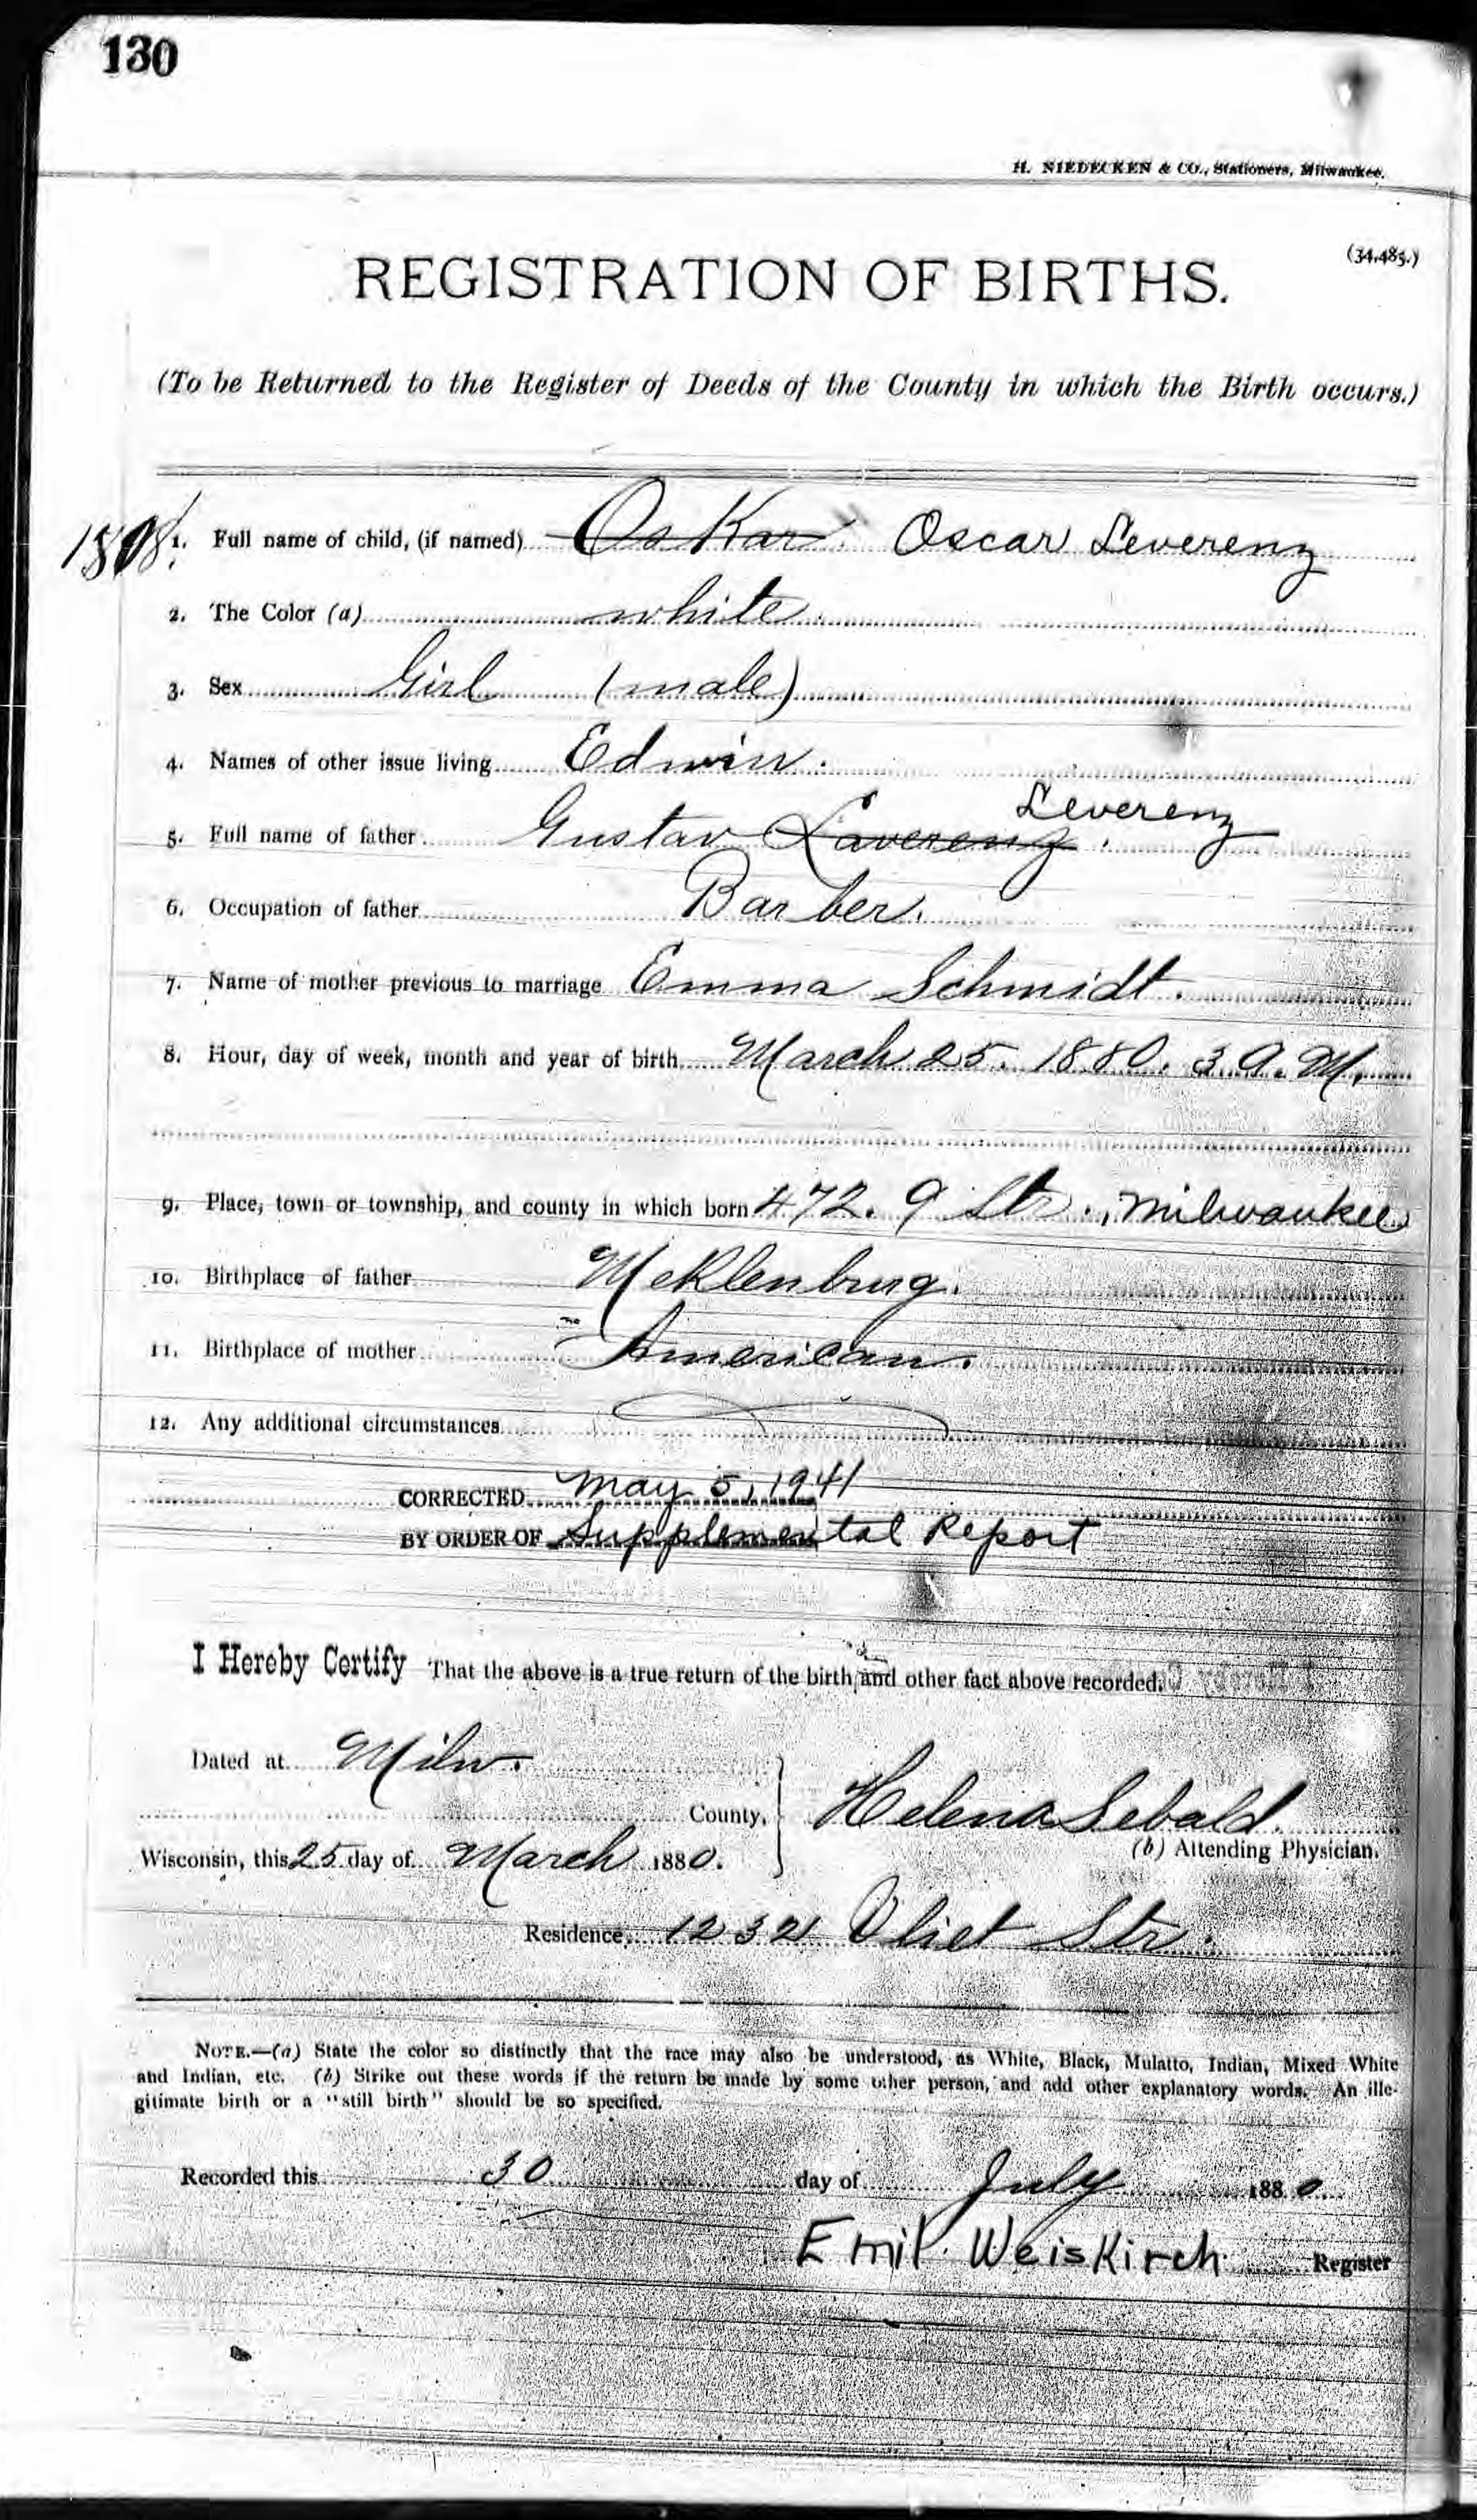 130
H. NIEDECKEN & CO., Stationers, Milwaukee.
(34,485.)
REGISTRATION OF BIRTHS.
(To be Returned to the Register of Deeds of the County in which the Birth occurs.)
1. Full name of child, (if named) Oskar Oscar Leverenz
2. The Color (a) white
3. Sex Girl (male)
4. Names of other issue living Edwin.
Leverenz
5. Full name of father Gustav Laverenz.
6. Occupation of father Barber.
7. Name of mother previous to marriage Emma Schmidt.
8. Hour, day of week, month and year of birth March 25. 1880. 3 A. M.
9. Place, town or township, and county in which born 472. 9 Str., Milwaukee
10. Birthplace of father Meklenburg.
11. Birthplace of mother American.
12. Any additional circumstances
CORRECTED May 5, 1941
BY ORDER OF Supplemental Report
I Hereby Certify That the above is a true return of the birth and other fact above recorded.
Dated at Milw.
County,
Helena Sebald.
(b) Attending Physician.
Wisconsin, this 25 day of March 1880.
Residence, 1232 Vliet Str.
NOTE.—(a) State the color so distinctly that the race may also be understood, as White, Black, Mulatto, Indian, Mixed White
and Indian, etc. (b) Strike out these words if the return be made by some other person, and add other explanatory words. An ille-
gitimate birth or a "still birth" should be so specified.
Recorded this 30 day of July 1880
Emil Weiskirch Register